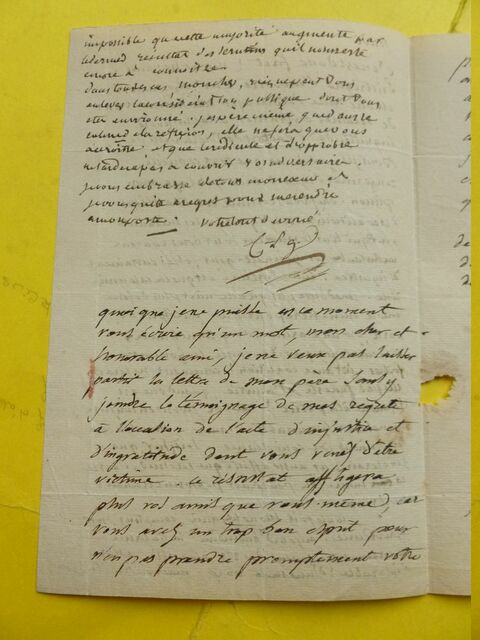 impossible que cette majorité augmente par
le dernier résultat des scrutins qu'il nous reste
encore à connoitre.
dans tous les cas mon cher, rien ne peut vous
enlever la considération publique dont vous
etes environné. j'espère même que dans le
calme de la réflexion, elle ne fera que vous
accroitre et que le ridicule et l'opprobre
à couvrir vos adversaires.
je vous embrasse de tout mon cœur et
je vous quitte à regret pour me rendre
à mon poste. votre tout dévoué
quoique je ne puisse en ce moment
vous écrire qu'un mot, mon cher et
honorable ami, je ne veux pas laisser
partir la lettre de mon père sans y
joindre le témoignage de mes regrets
à l'occasion de l'acte d'injustice et
d'ingratitude dont vous venez d'être
victime. ce résultat affligera
plus vos amis que vous même, car
vous avez un trop bon esprit pour
n'en pas prendre promptement votre